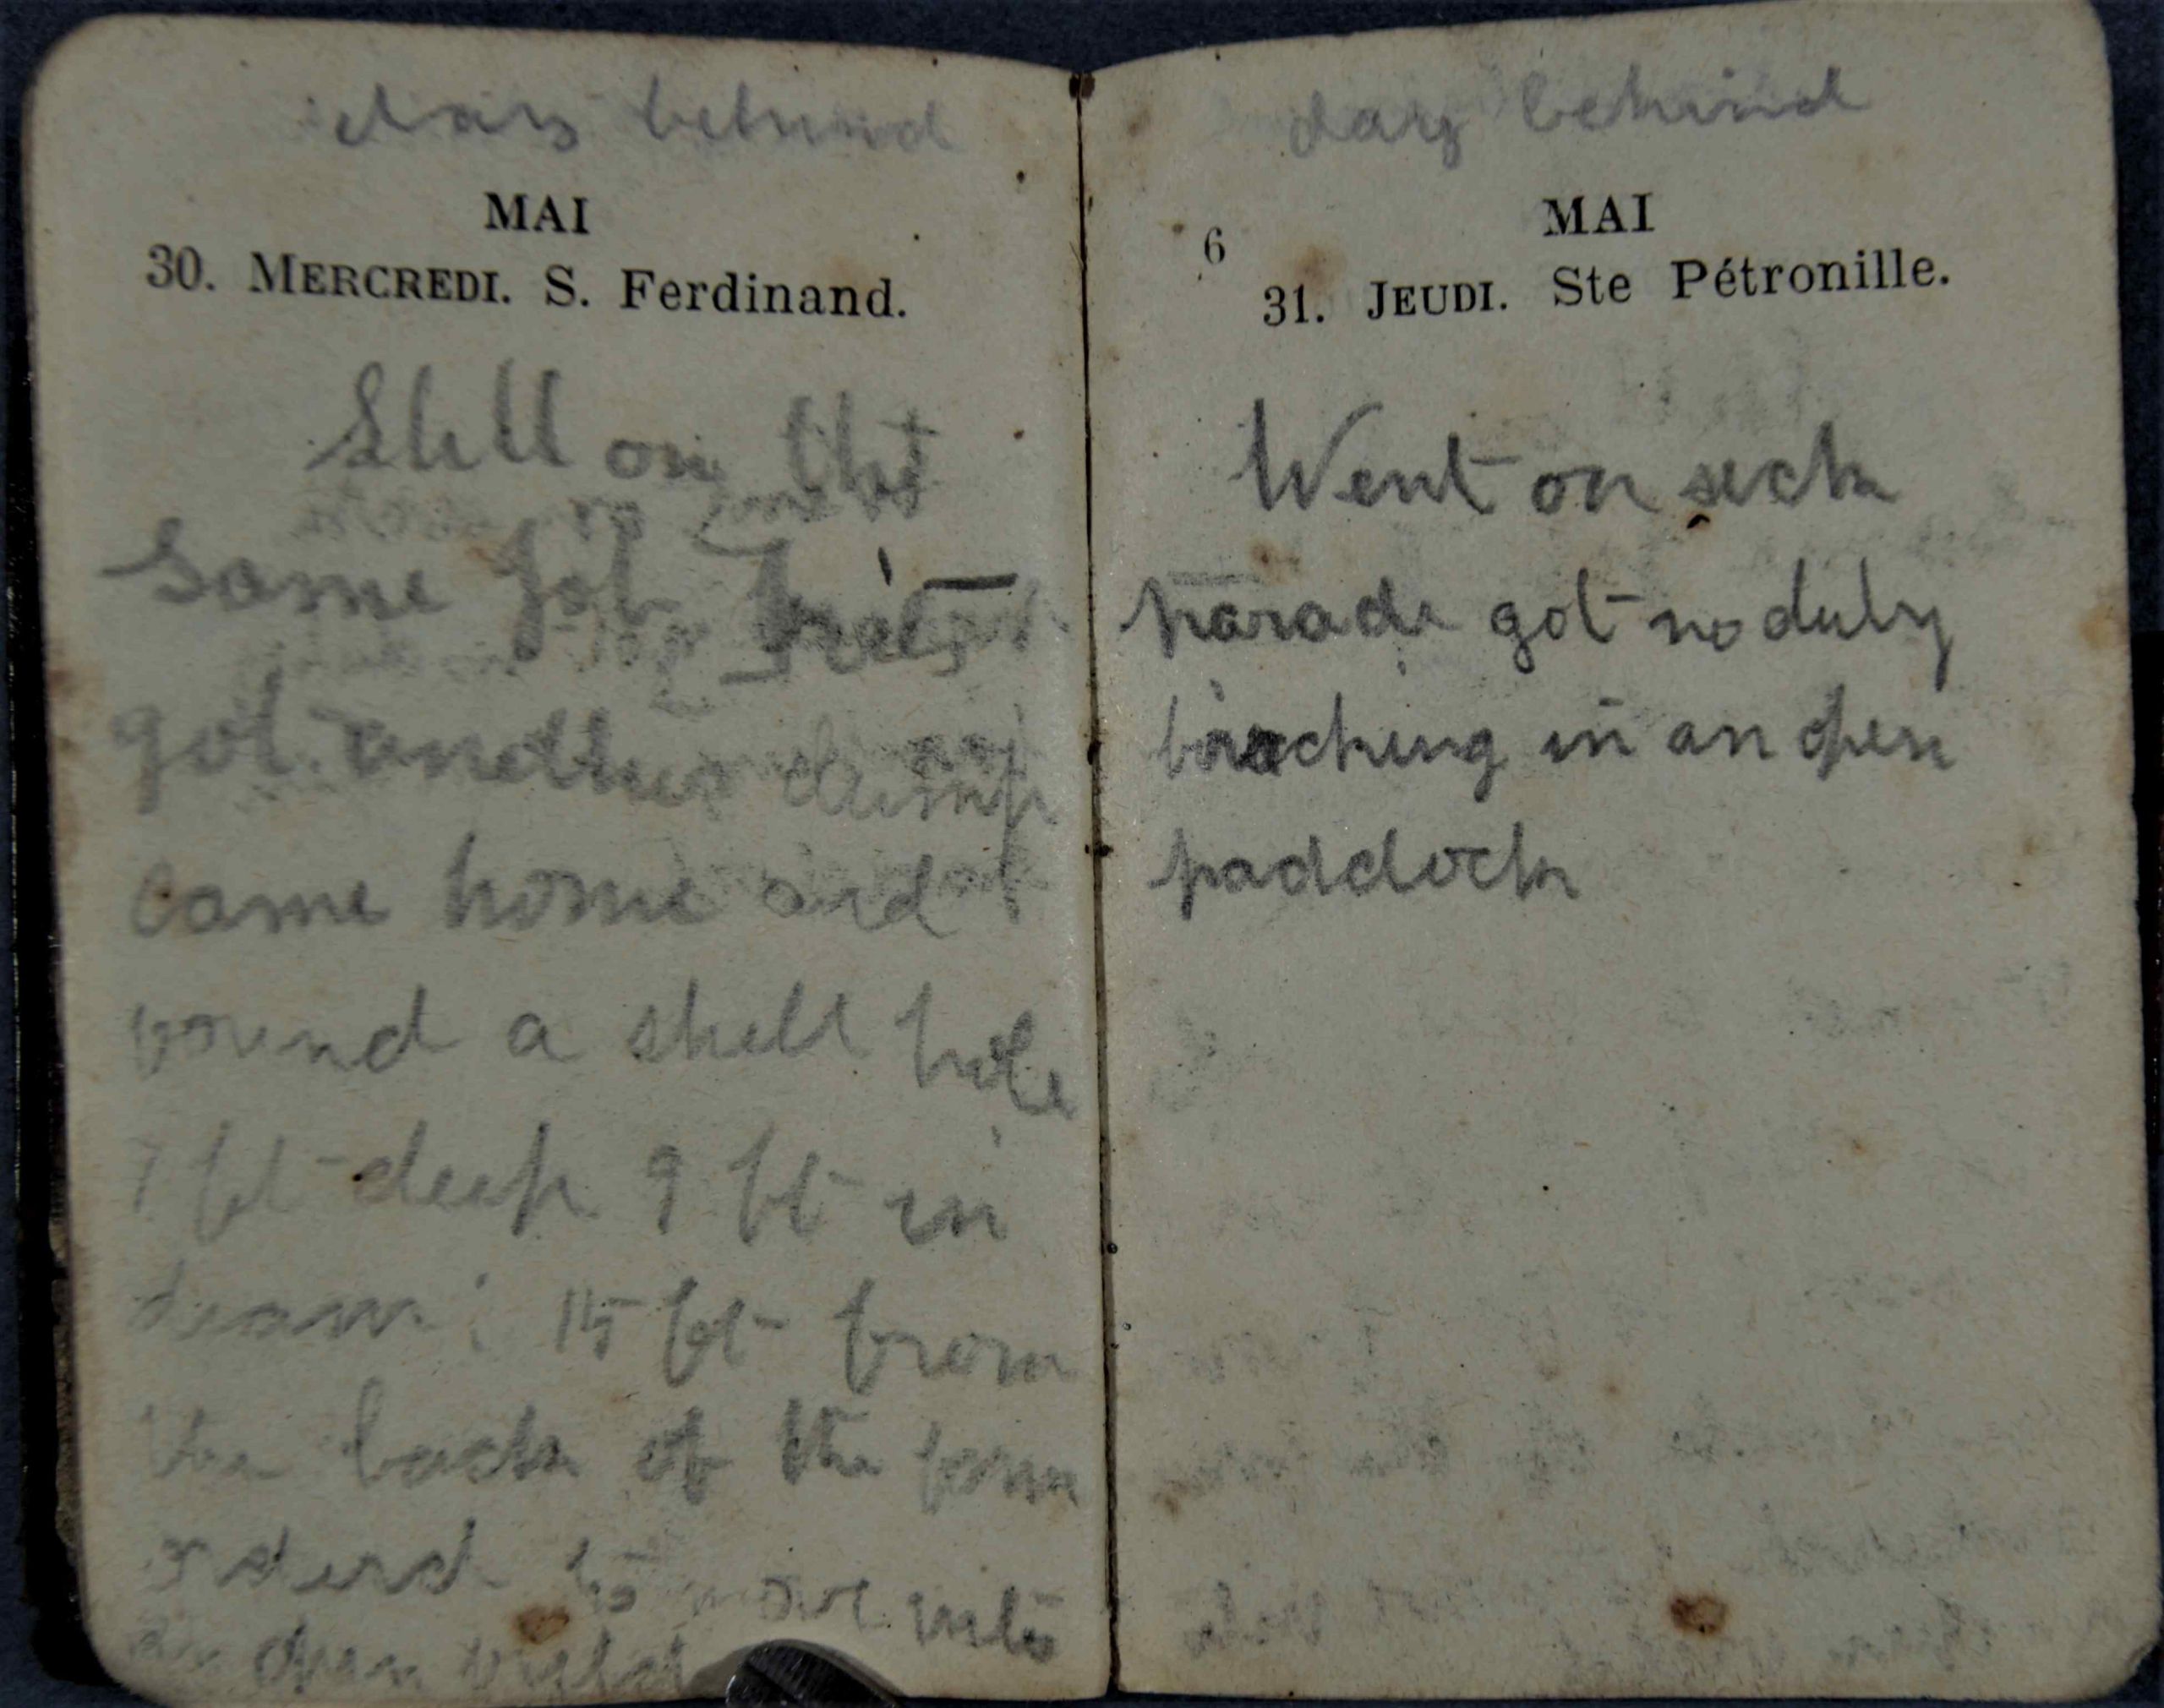 days behind
MAI
30. MERCREDI. S. Ferdinand.
Still on that
same Job Fritz
got another dump
came home and
found a shell hole
7 ft deep 9 ft in
15 ft from
the back of the farm
orderd to move into
an open
day behind
6
MAI
31. JEUDI. Ste Pétronille.
Went on sick
parade got no duty
in an open
paddock